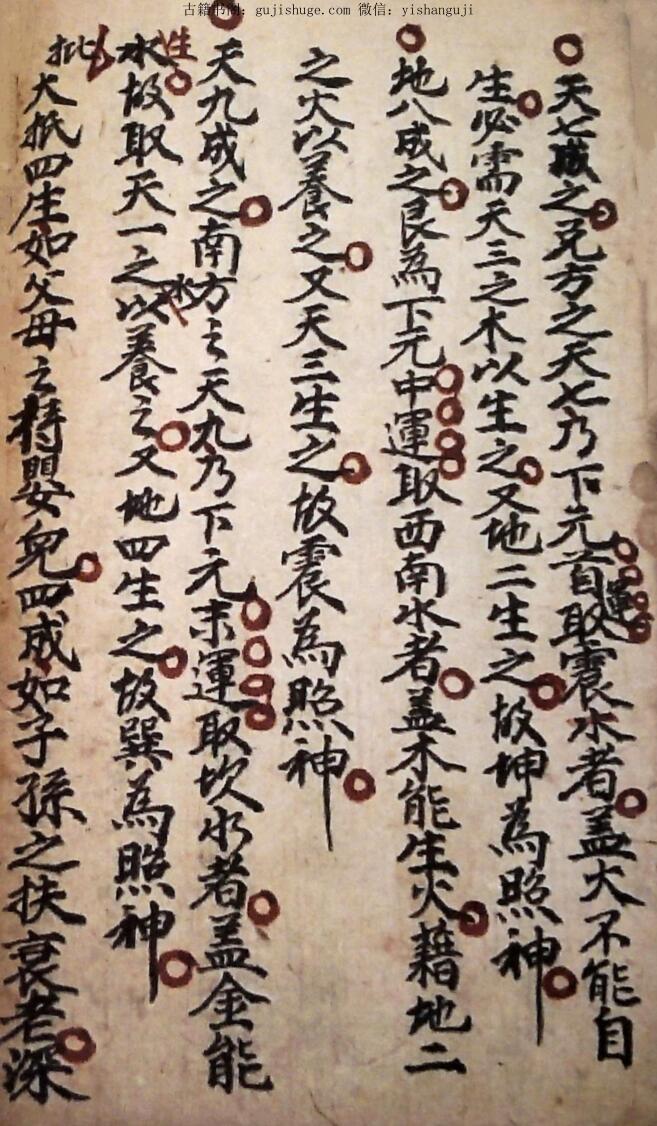 古籍书阁: gujishuge.com 微信: yishanguji
天七成之兑方之天七乃下元首運取震水者盖火不能自
生必需天三之木以生之又地二生之故坤為照神
地八成之艮為下元中運取西南水者盖木能生火藉地二
之火以養之又天三生之故震為照神
天九成之南方之天九乃下元末運取坎水者盖金能
生水故取天一之水以養之又地四生之故巽為照神
批大抵四生如父母之持嬰兒四成如子孫之扶衰老深